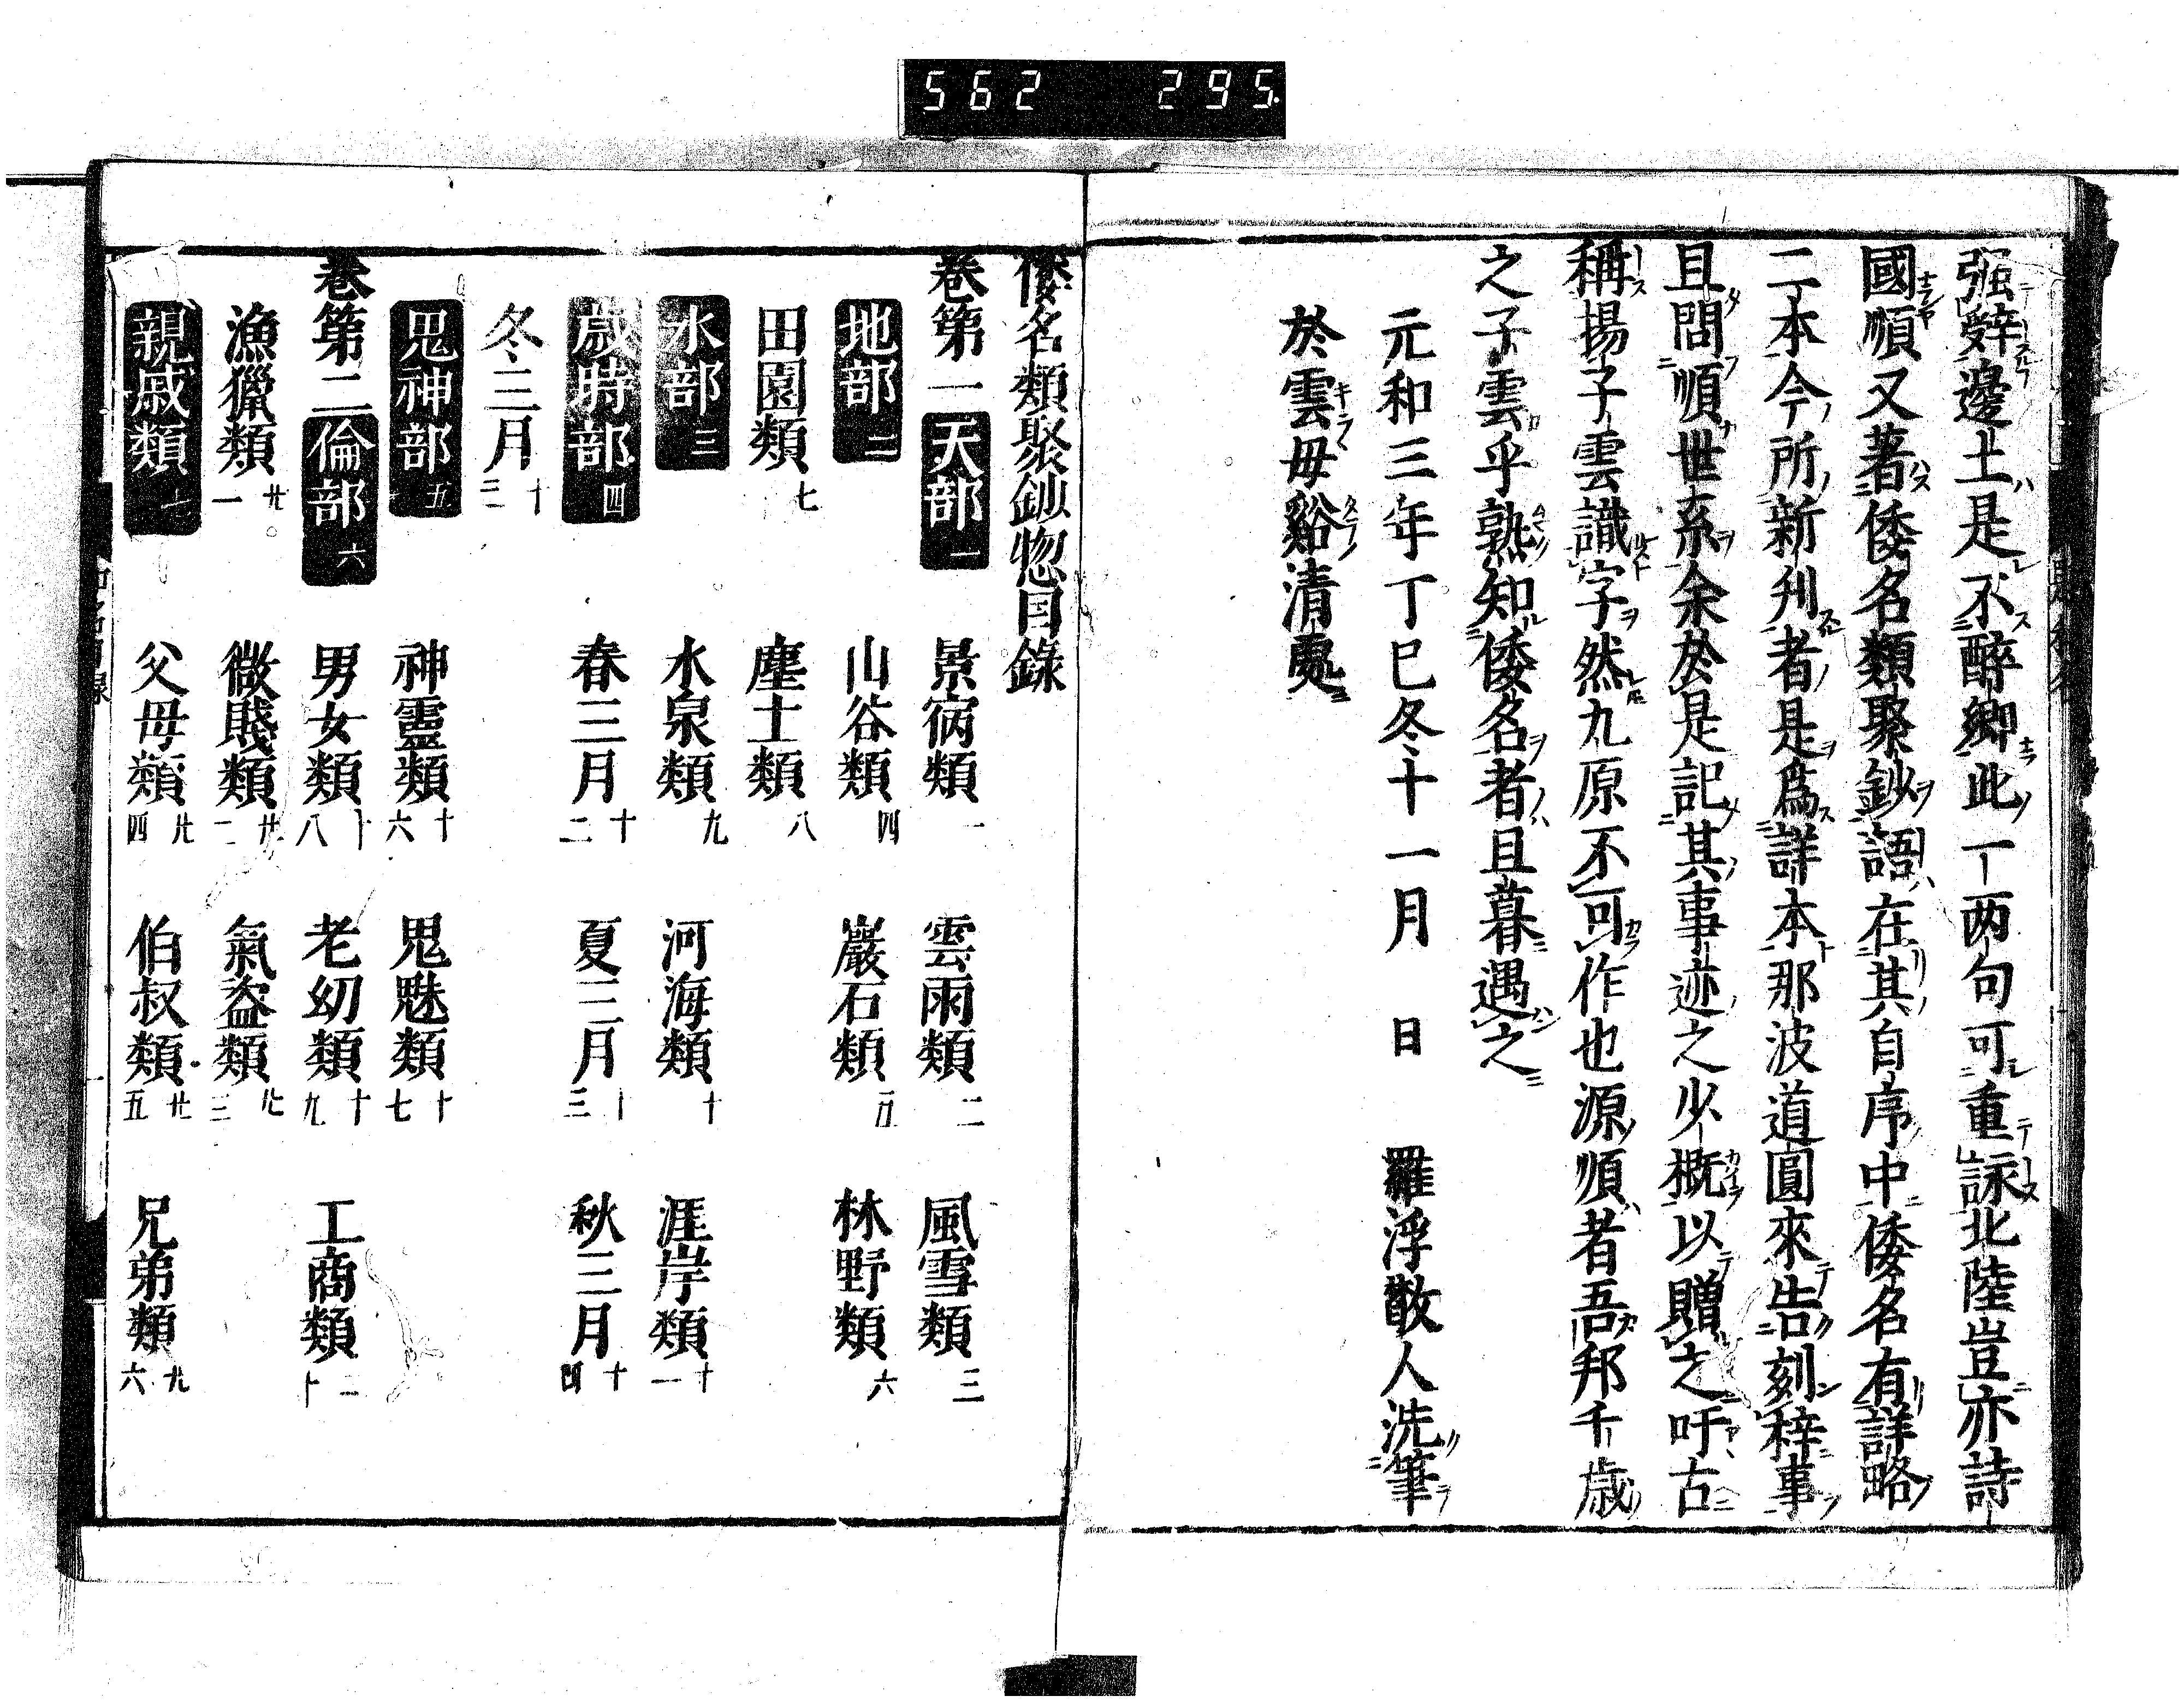 562 295
强辤邊土是不醉鄉此一両句可重詠北陸豈亦詩
國順又著倭名類聚鈔語在其自序中倭名有詳略
二本今所新刋者是爲詳本那波道圓來告刻梓事
且問順世系余於是記其事迹之少概以贈之吁古
稱揚子雲識字然九原不可作也源順者吾邦千歳
之子雲乎熟知倭名者且暮遇之
元和三年丁巳冬十一月 日 羅浮散人洗筆
於雲毋谿清處
倭名類聚鈔惣目錄
巻第一 天部一 景宿類一 雲雨類二 風雪類三
地部二 山谷類四 巖石類五 林野類六
田園類七 塵土類八
水部三 水泉類九 河海類十 涯岸類十一
歳時部四 春三月十二 夏三月十三 秋三月十四
冬三月十三
鬼神部五 神靈類十六 鬼魅類十七
巻第二 倫部六 男女類十八 老幼類十九 工商類二十
漁獵類廿一 微賤類廿二 氣盗類廿三
親戚類七 父母類廿四 伯叔類廿五 兄弟類廿六